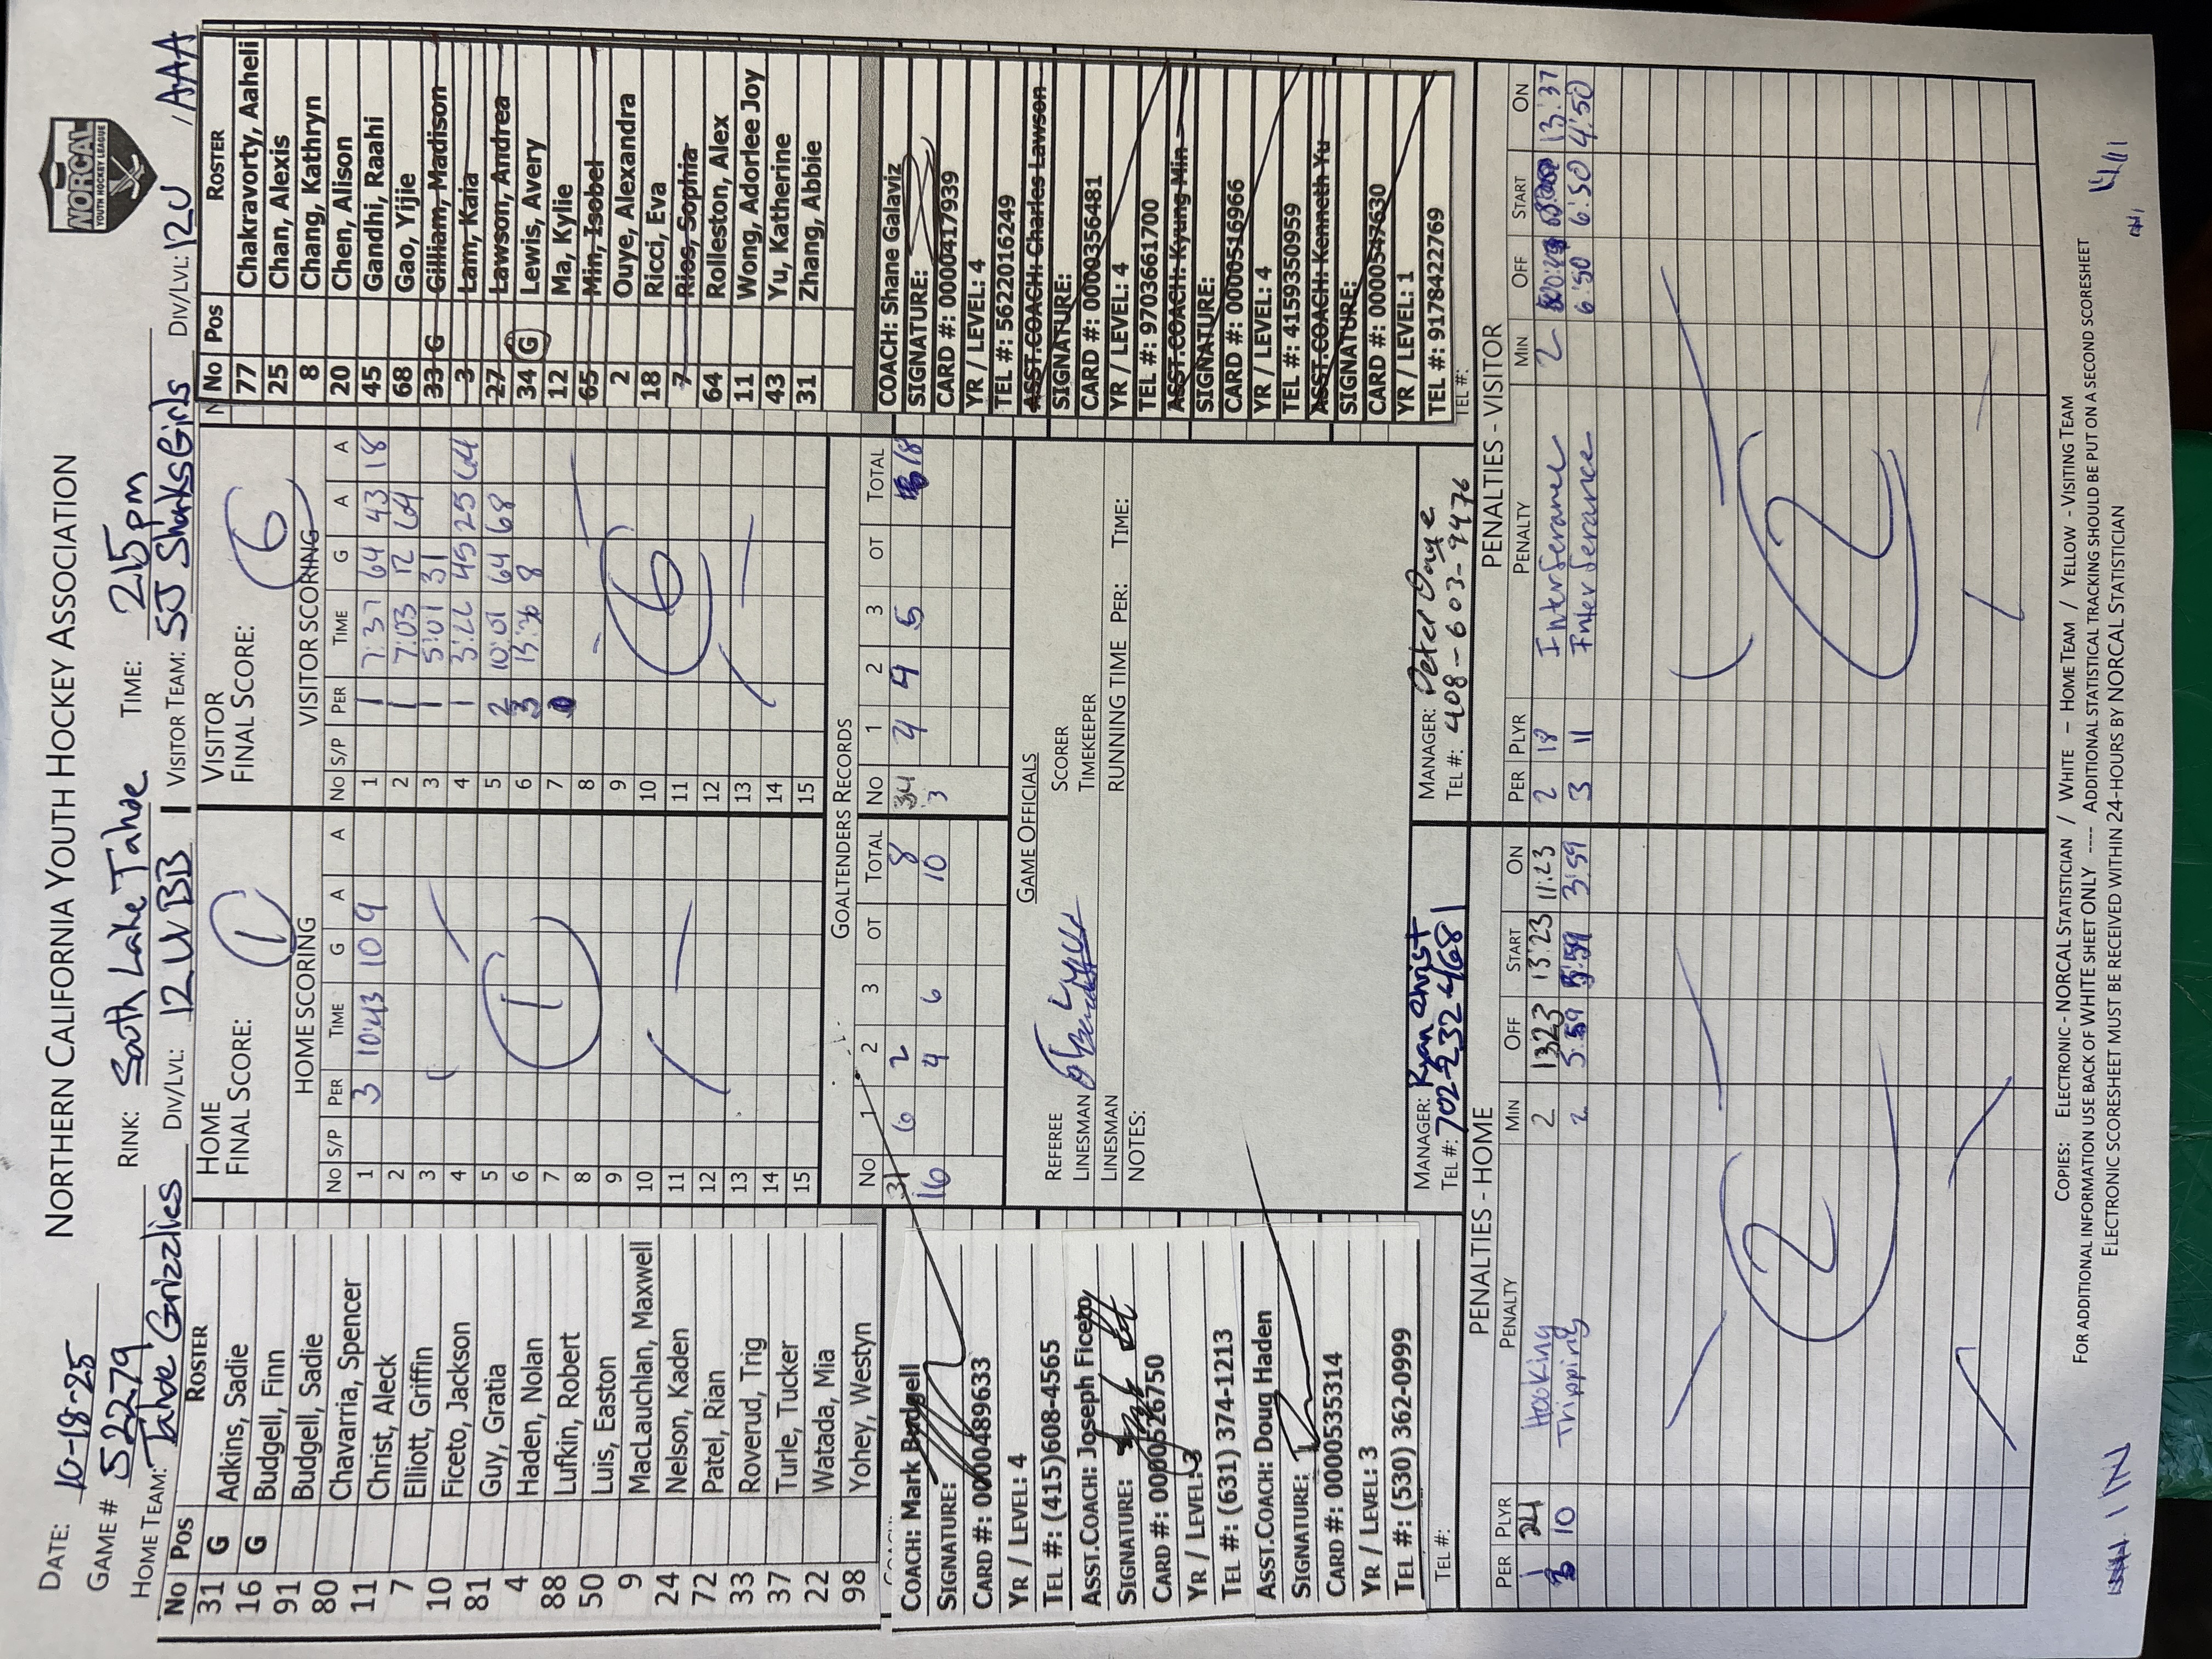 NORTHERN CALIFORNIA YOUTH HOCKEY ASSOCIATION
NORCAL
YOUTH HOCKEY LEAGUE
DATE: 10-18-25
GAME # 52279
RINK: South Lake Tahoe
TIME: 215pm
HOME TEAM: Tahoe Grizzlies
DIV/LVL: 12U BB
VISITOR TEAM: SJ Sharks Girls
DIV/LVL: 12U /AAA
NO POS ROSTER
31 G Adkins, Sadie
16 G Budgell, Finn
91 Budgell, Sadie
80 Chavarria, Spencer
11 Christ, Aleck
7 Elliott, Griffin
10 Ficeto, Jackson
81 Guy, Gratia
4 Haden, Nolan
88 Lufkin, Robert
50 Luis, Easton
9 MacLauchlan, Maxwell
24 Nelson, Kaden
72 Patel, Rian
33 Roverud, Trig
37 Turle, Tucker
22 Watada, Mia
98 Yohey, Westyn
COACH: Mark Budgell
SIGNATURE:
CARD #: 0000489633
YR / LEVEL: 4
TEL #: (415)608-4565
ASST.COACH: Joseph Ficeto
SIGNATURE:
CARD #: 0000526750
YR / LEVEL: 3
TEL #: (631) 374-1213
ASST.COACH: Doug Haden
SIGNATURE:
CARD #: 0000535314
YR / LEVEL: 3
TEL #: (530) 362-0999
TEL #:
HOME
FINAL SCORE: 1
HOME SCORING
NO S/P PER TIME G A A
1 3 10:43 10 9
2
3
4
5
6
7
8
9
10
11
12
13
14
15
1
VISITOR
FINAL SCORE: 6
VISITOR SCORING
NO S/P PER TIME G A A
1 1 7:37 64 43 18
2 1 7:03 12 64
3 1 5:01 31
4 1 3:22 45 25 64
5 2 10:01 64 68
6 3 13:36 8
7
8
9
10
11
12
13
14
15
6
GOALTENDERS RECORDS
NO 1 2 3 OT TOTAL
31 6 2 8
16 4 6 10
NO 1 2 3 OT TOTAL
34 4 4 5 18
3
GAME OFFICIALS
REFEREE
LINESMAN
LINESMAN
SCORER
TIMEKEEPER
RUNNING TIME PER: TIME:
NOTES:
MANAGER: Ryan Christ
TEL #: 702-232-4681
MANAGER: Peter Dage
TEL #: 408-603-9476
NO POS ROSTER
77 Chakravorty, Aaheli
25 Chan, Alexis
8 Chang, Kathryn
20 Chen, Alison
45 Gandhi, Raahi
68 Gao, Yijie
33 G Gilliam, Madison
3 Lam, Kaia
27 Lawson, Andrea
34 G Lewis, Avery
12 Ma, Kylie
65 Min, Isobel
2 Ouye, Alexandra
18 Ricci, Eva
7 Rios, Sophia
64 Rolleston, Alex
11 Wong, Adorlee Joy
43 Yu, Katherine
31 Zhang, Abbie
COACH: Shane Galaviz
SIGNATURE:
CARD #: 0000417939
YR / LEVEL: 4
TEL #: 5622016249
ASST.COACH: Charles Lawson
SIGNATURE:
CARD #: 0000356481
YR / LEVEL: 4
TEL #: 9703661700
ASST.COACH: Kyung Min
SIGNATURE:
CARD #: 0000516966
YR / LEVEL: 4
TEL #: 4159350959
ASST.COACH: Kenneth Yu
SIGNATURE:
CARD #: 0000547630
YR / LEVEL: 1
TEL #: 9178422769
TEL #:
PENALTIES - HOME
PER PLYR PENALTY MIN OFF START ON
1 24 Hooking 2 1323 13:23 11:23
3 10 Tripping 2 5:59 5:59 3:59
2
PENALTIES - VISITOR
PER PLYR PENALTY MIN OFF START ON
2 18 Interferance 2 13:37
3 11 Interferance 6:50 6:50 4:50
2
COPIES: ELECTRONIC - NORCAL STATISTICIAN / WHITE - HOME TEAM / YELLOW - VISITING TEAM
FOR ADDITIONAL INFORMATION USE BACK OF WHITE SHEET ONLY ---- ADDITIONAL STATISTICAL TRACKING SHOULD BE PUT ON A SECOND SCORESHEET
ELECTRONIC SCORESHEET MUST BE RECEIVED WITHIN 24-HOURS BY NORCAL STATISTICIAN